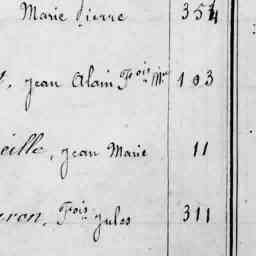 Marie Pierre 354
Jean Alain Fois Mie 103
eille, Jean Marie 11
ron, Fois Jules 311